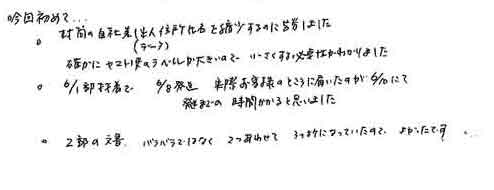 今回初めて...
封筒の自社差出人住所氏名を縮少するのに苦労しました
(ラベル)
確かに ヤマト便のラベルが大きいので 小さくする必要性がわかりました
6/1部材着で 6/8発送 実際お客様のところに届いたのが6/10にて
発送までの 時間がかると思いました
2部の文書 バラバラではなく 2つあわせて 3つ折になっていたので よかったです ...